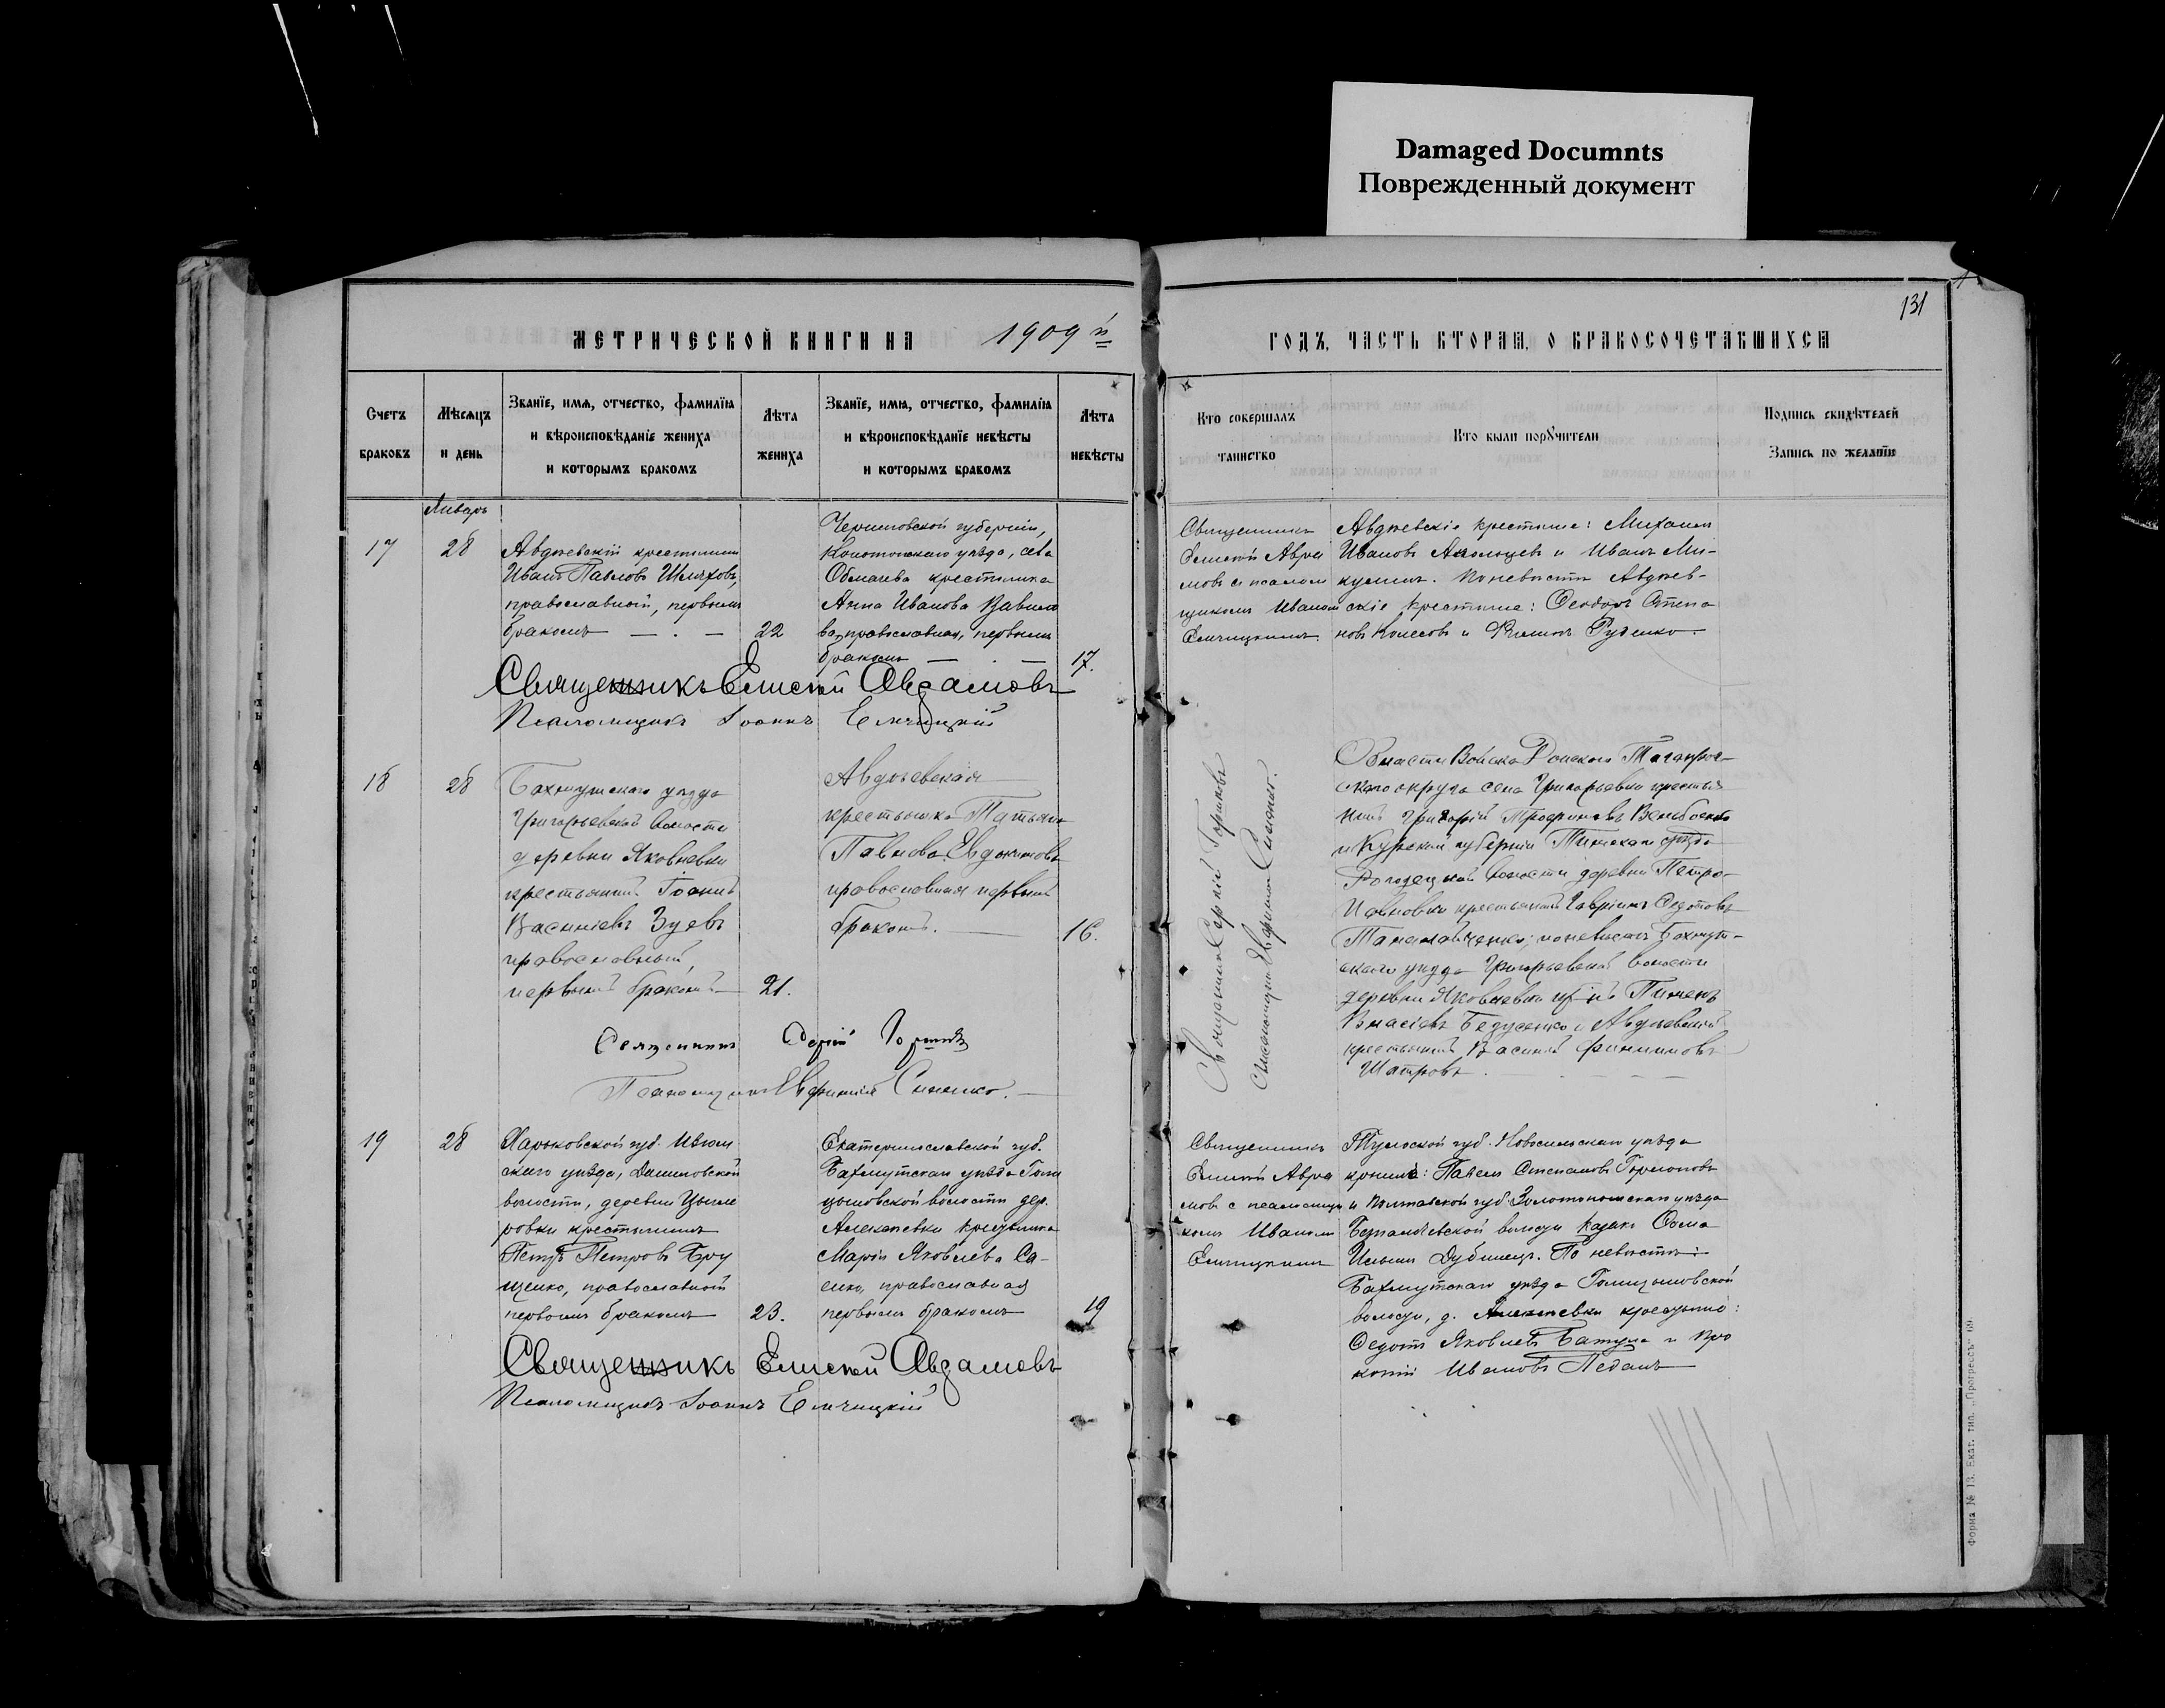 Damaged Documnts
Поврежденный документ
131
МЕТРИЧЕСКОЙ КНИГИ НА 1909 й
ГОДЪ, ЧАСТЬ ВТОРАЯ, О БРАКОСОЧЕТАВШИХСЯ
Счетъ
браковъ
Мѣсяцъ
и день
Званїе, имя, отчество, фамилїя
и вѣроисповѣданїе жениха
и которымъ бракомъ
Лѣта
жениха
Званїе, имя, отчество, фамилїя
и вѣроисповѣданїе невѣсты
и которымъ бракомъ
Лѣта
невѣсты
Кто совершалъ
таинство
Кто были поручители
Подпись свидѣтелей
Запись по желанїю
Январь
17
28
Авдѣевскій крестьянинъ
Иванъ Павловъ Шляховъ,
православный, первымъ
бракомъ
22
Черниговской губерніи,
Конотопскаго уѣзда, села
Обмачева крестьянка
Анна Иванова Вавило
ва, православная, первымъ
бракомъ
17.
Священникъ
Елисей Авра
мовъ съ псалом
щикомъ Иваномъ
Елчицкимъ.
Авдѣевскіе крестьяне: Михаилъ
Ивановъ и Иванъ Ми-
По невѣстѣ Авдѣев-
скіе крестьяне: Ѳеодоръ Степа
новъ Колесовъ и Филипъ Руденко.
Священникъ Елисей Авдамовъ
Псаломщикъ Іоаннъ Елчицкій
18
28
Бахмутскаго уѣзда
Григорьевской волости
деревни Яковлевки
крестьянинъ Іоаннъ
Васильевъ Зуевъ
православный,
первымъ бракомъ
21.
Авдѣевская
крестьянка Татьяна
Павлова Евдокимова
православная первымъ
бракомъ.
16.
Священникъ Сергій Горяиновъ
Псаломщикъ Евфимій Синенко.
Области Войска Донского Таганрог-
скаго округа села Григорьевки крестья
нинъ Григорій Трофимовъ
и Курской губерніи Тимскаго уѣзда
волости деревни Петро-
Павловки крестьянинъ Гавріилъ Ѳедотовъ
по невѣстѣ Бахмут-
скаго уѣзда Григорьевской волости
деревни Яковлевки кр-нъ Пименъ
Власіевъ и Авдѣевскій
крестьянинъ Василій Филиповъ
Шатровъ.
Священникъ Сергій
Псаломщикъ Евфимій Синенко.
19
28
Харьковской губ. Изюм
скаго уѣзда, Даниловской
волости, деревни
ровки крестьянинъ
Петръ Петровъ Бру
щенко, православный
первымъ бракомъ
23.
Екатеринославской губ.
Бахмутскаго уѣзда Голи
цыновской волости дер.
Алексѣевки крестьянка
Марія Яковлева Са-
енко, православная
первымъ бракомъ
19
Священникъ
Елисей Авра
мовъ с псаломщи
комъ Иваномъ
Елчицкимъ
Тульской губ. Новосильскаго уѣзда
Павелъ Степановъ
и Полтавской губ. Золотоношскаго уѣзда
волости казакъ Ѳома
Ильинъ Дубинецъ. По невѣстѣ:
Бахмутскаго уѣзда Голицыновской
волости, д. Алексѣевки крестьяне:
Ѳедотъ Яковлевъ Батула и Про
копій Ивановъ Педанъ
Священникъ Елисей Авдамовъ
Псаломщикъ Іоаннъ Елчицкій
Форма № 13. Екат. тип. „Прогрессъ“